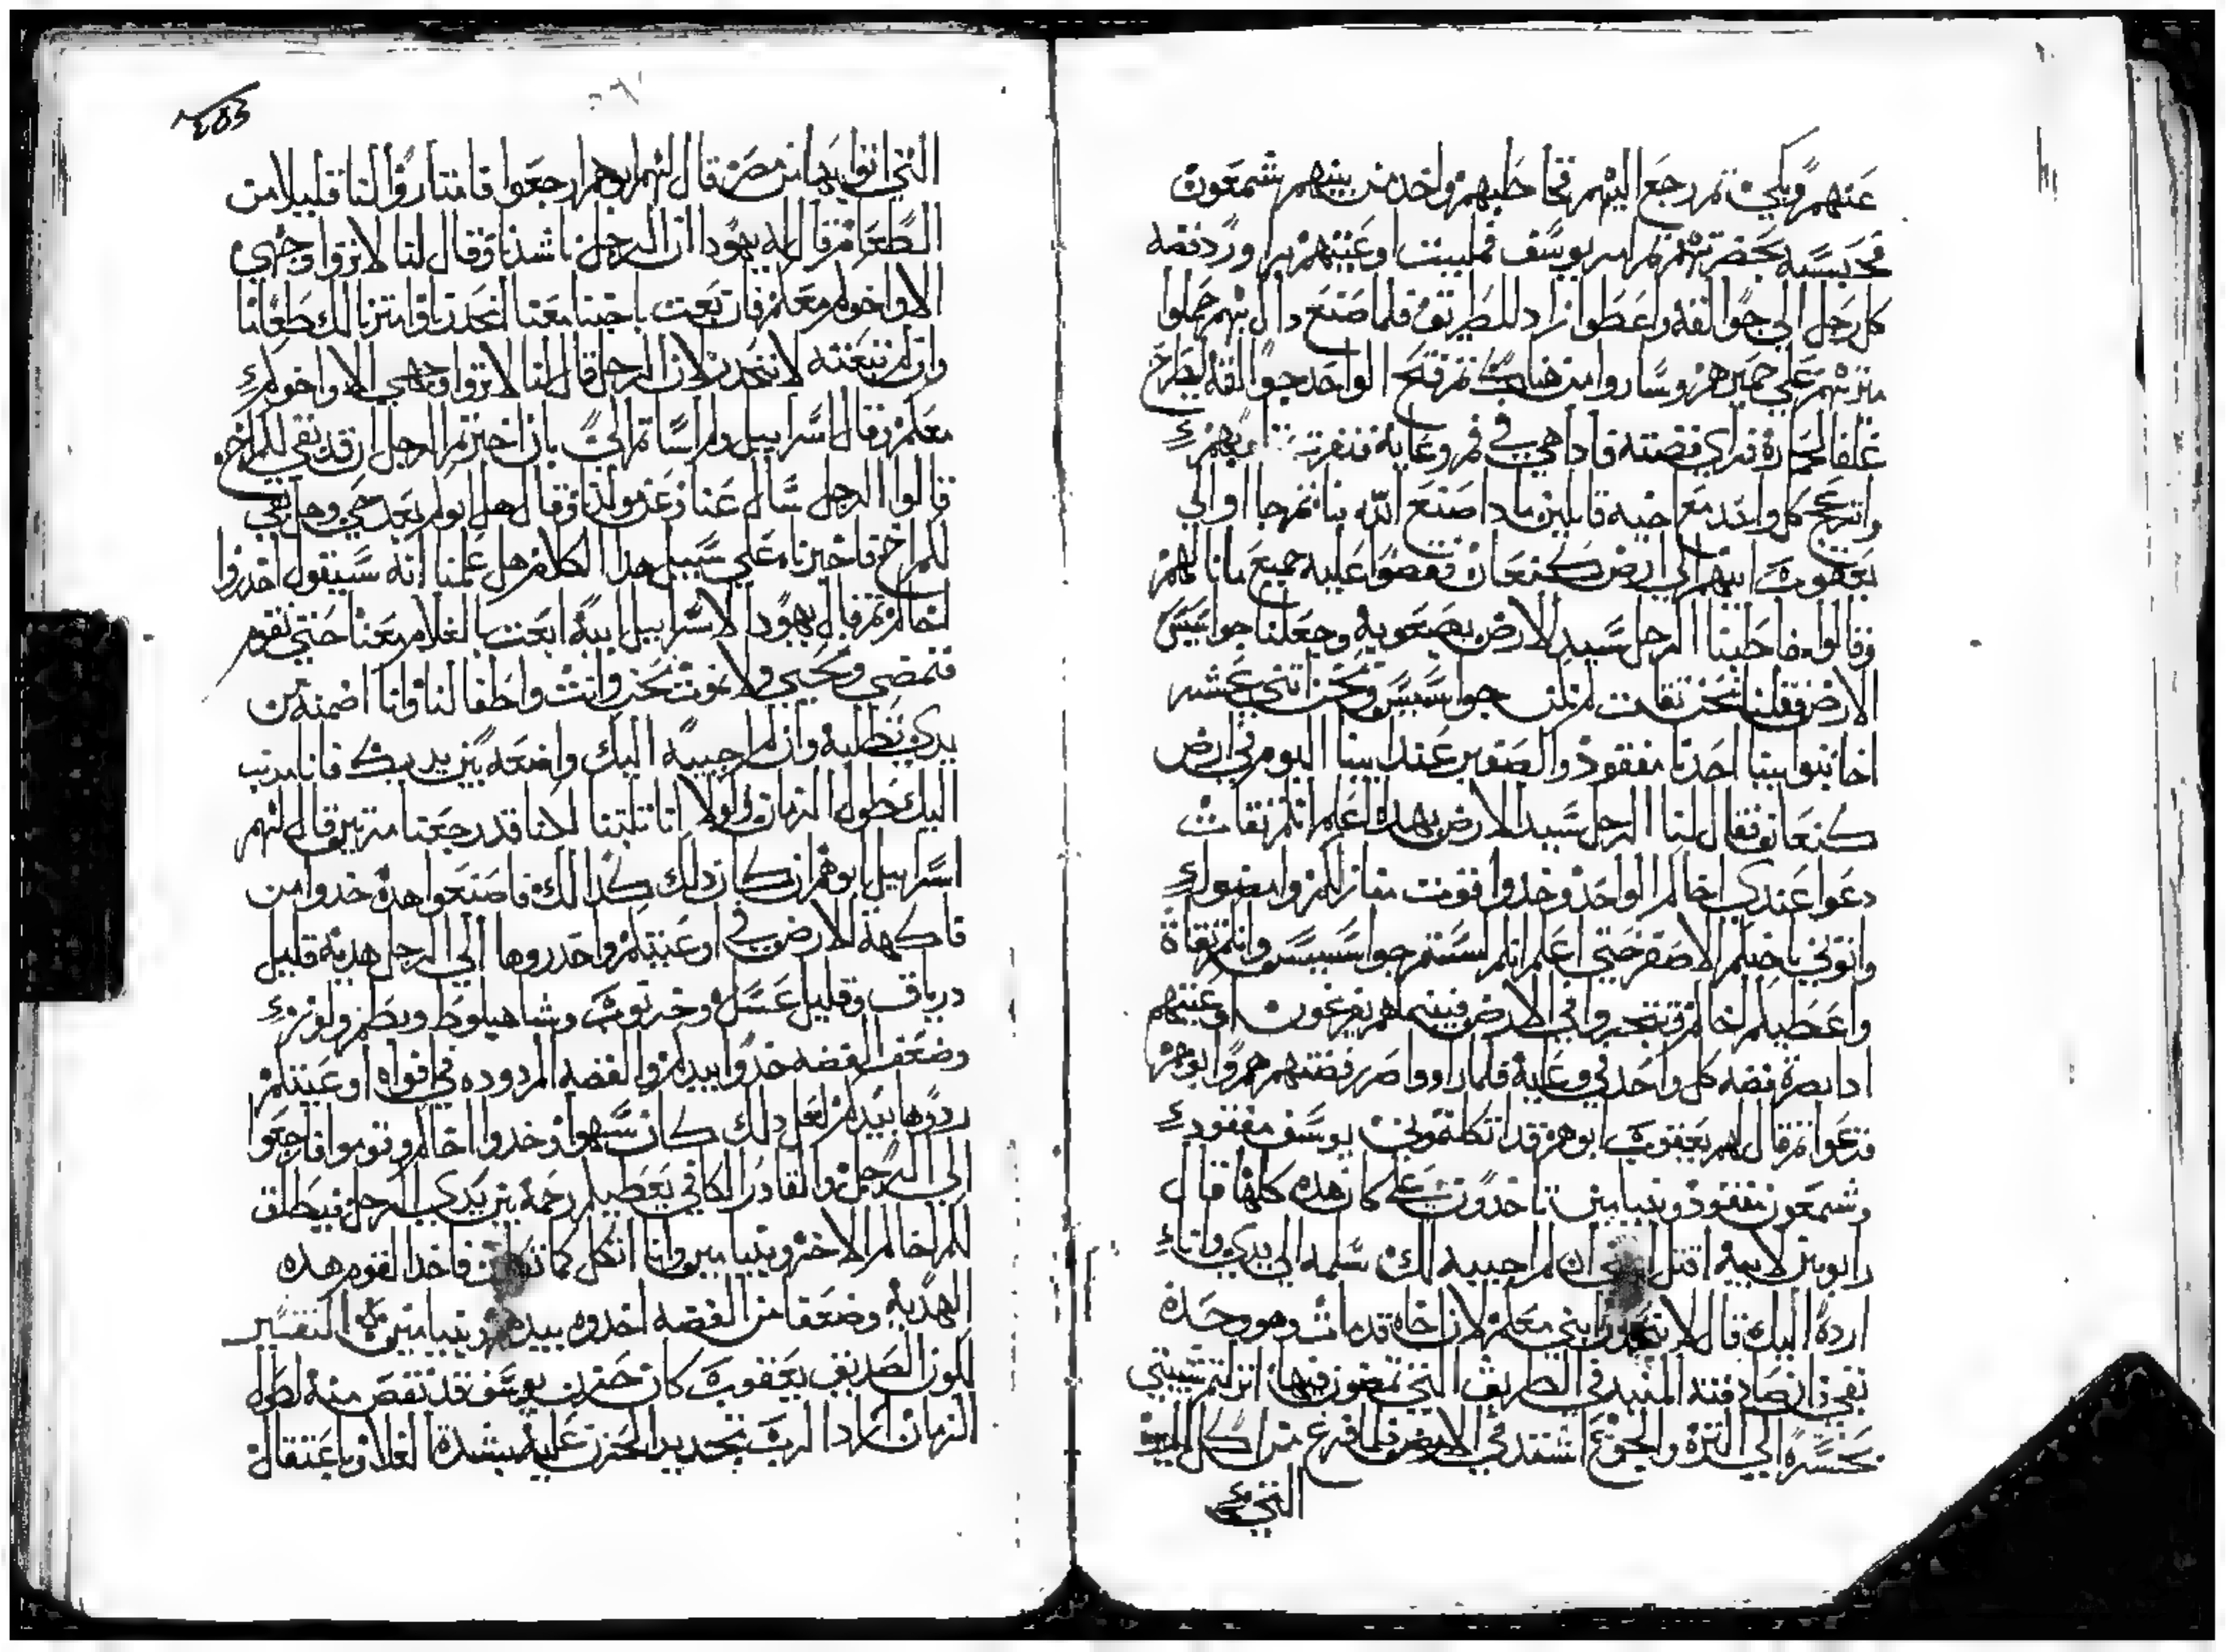 عنهم وبكي ثم رجع اليهم فخاطبهم واخد من بينهم شمعون
فحبسه بحضرتهم ثم امر يوسف فمليت اوعيتهم برا ورد فضه
كل رجل الي جوالقه واعطوا زاد للطريق فلما صنع دالك بهم حملوا
ميرتهم علي حميرهم وساروا من هناك ثم فتح الواحد جوالقه ليطرح
علفا لحماره فراي فضته فادا هي في فم وعايه فنفرت
وانزعج كل واحد مع اخيه قايلين مادا صنع الله بنا ثم جاوا الي
يعقوب ابيهم الي ارض كنعان فقصوا عليه جميع ما نالهم
وقالوا خاطبنا الرجل سيد الارض بصعوبه وجعلنا جواسيس
الارض فقلنا نحن تقات لم نكن جواسيس ونحن اثني عشر
اخا بنوا ابينا احدنا مفقود والصغير عند ابينا اليوم في ارض
كنعان فقال لنا الرجل سيد الارض بهدا اعلم انكم تقات
دعوا عندي اخاكم الواحد وخدوا قوت منازلكم وامضوا
واتوني باخيكم الاصغر حتي اعلم انكم لستم جواسيس وانكم تقاة
واعطيكم اخاكم وتتجروا في الارض فبينما هم يفرغون اوعيتهم
ادا بصرة فضه كل واحد في وعايه فلما راوا صرر فضتهم هم وابوهم
فزعوا ثم قال لهم يعقوب ابوهم قد اتكلتموني يوسف مفقود
وشمعون مفقود وبنيامين تاخدون علي كان هده كلها قال
رابوبين لابيه اقتل ان لم اجيبه لك سلمه الي يدي وانا
ارده اليك قال لا ينحدر ابني معكم لان اخاه قد مات وهو وحده
بقي فان صادفته المنيه في الطريق التي تمضون فيها انزلتم شيبتي
بحسره الي التري والجوع اشتد في الارض فلما فرغ من اكل الميره
التي
التي اتوا بها من مصر قال لهم ابوهم ارجعوا فامتاروا لنا قليلا من
الطعام قال له يهودا ان الرجل ناشدنا وقال لنا لا تروا وجهي
الا واخوكم معكم فان بعت باخينا معنا انحدرنا وامترنا لك طعاما
وان لم تبعته لا ننحدر لان الرجل قال لنا لا تروا وجهي الا واخوكم
معكم قال اسراييل ولم اساتم الي بان اخبرتم الرجل ان قد بقي لكم اخ
قالوا الرجل سال عنا وعن مولدنا وقال هل ابوكم بعد حي وهل بقي
لكم اخ فاخبرناه علي سبيل هدا الكلام هل علمنا انه سيقول احدروا
اخاكم ثم قال يهودا لاسراييل ابيه ابعت بالغلام معنا حتي نقوم
فنمضي ونحيي ولا نموت نحن وانت واطفالنا وانا اضمنه من
يدي تطلبه وان لم اجيبه اليك واضعه بين يديك فانا مدنب
اليك طول الزمان ولولا انا تلبتنا لكنا قد رجعنا مرتين قال لهم
اسراييل ابوهم ان كان دلك كدالك فاصنعوا هده خدوا من
فاكهة الارض في اوعيتكم واحدروها الي الرجل هديه قليل
درياق وقليل عسل وخرنوب وشاهبلوط وبطم ولوز
وضعف الفضه خدوا بيدكم والفضه المردوده في افواه اوعيتكم
ردوها بيدكم لعل دلك كان سهوا وخدوا اخاكم وقوموا فارجعوا
الي الرجل والقادر الكافي يعطيكم رحمه بين يدي الرجل فيطلق
لكم اخاكم الاخر وبنيامين وانا اتكل كما تكلت فاخدا القوم هده
الهديه وضعفا من الفضه اخدوه بيدهم وبنيامين التفسير
لكون الصديق يعقوب كان حزن يوسف قد نقص منه لطول
الزمان اراد الرب تجديد الحزن عليه بشدة الغلا وباعتقال